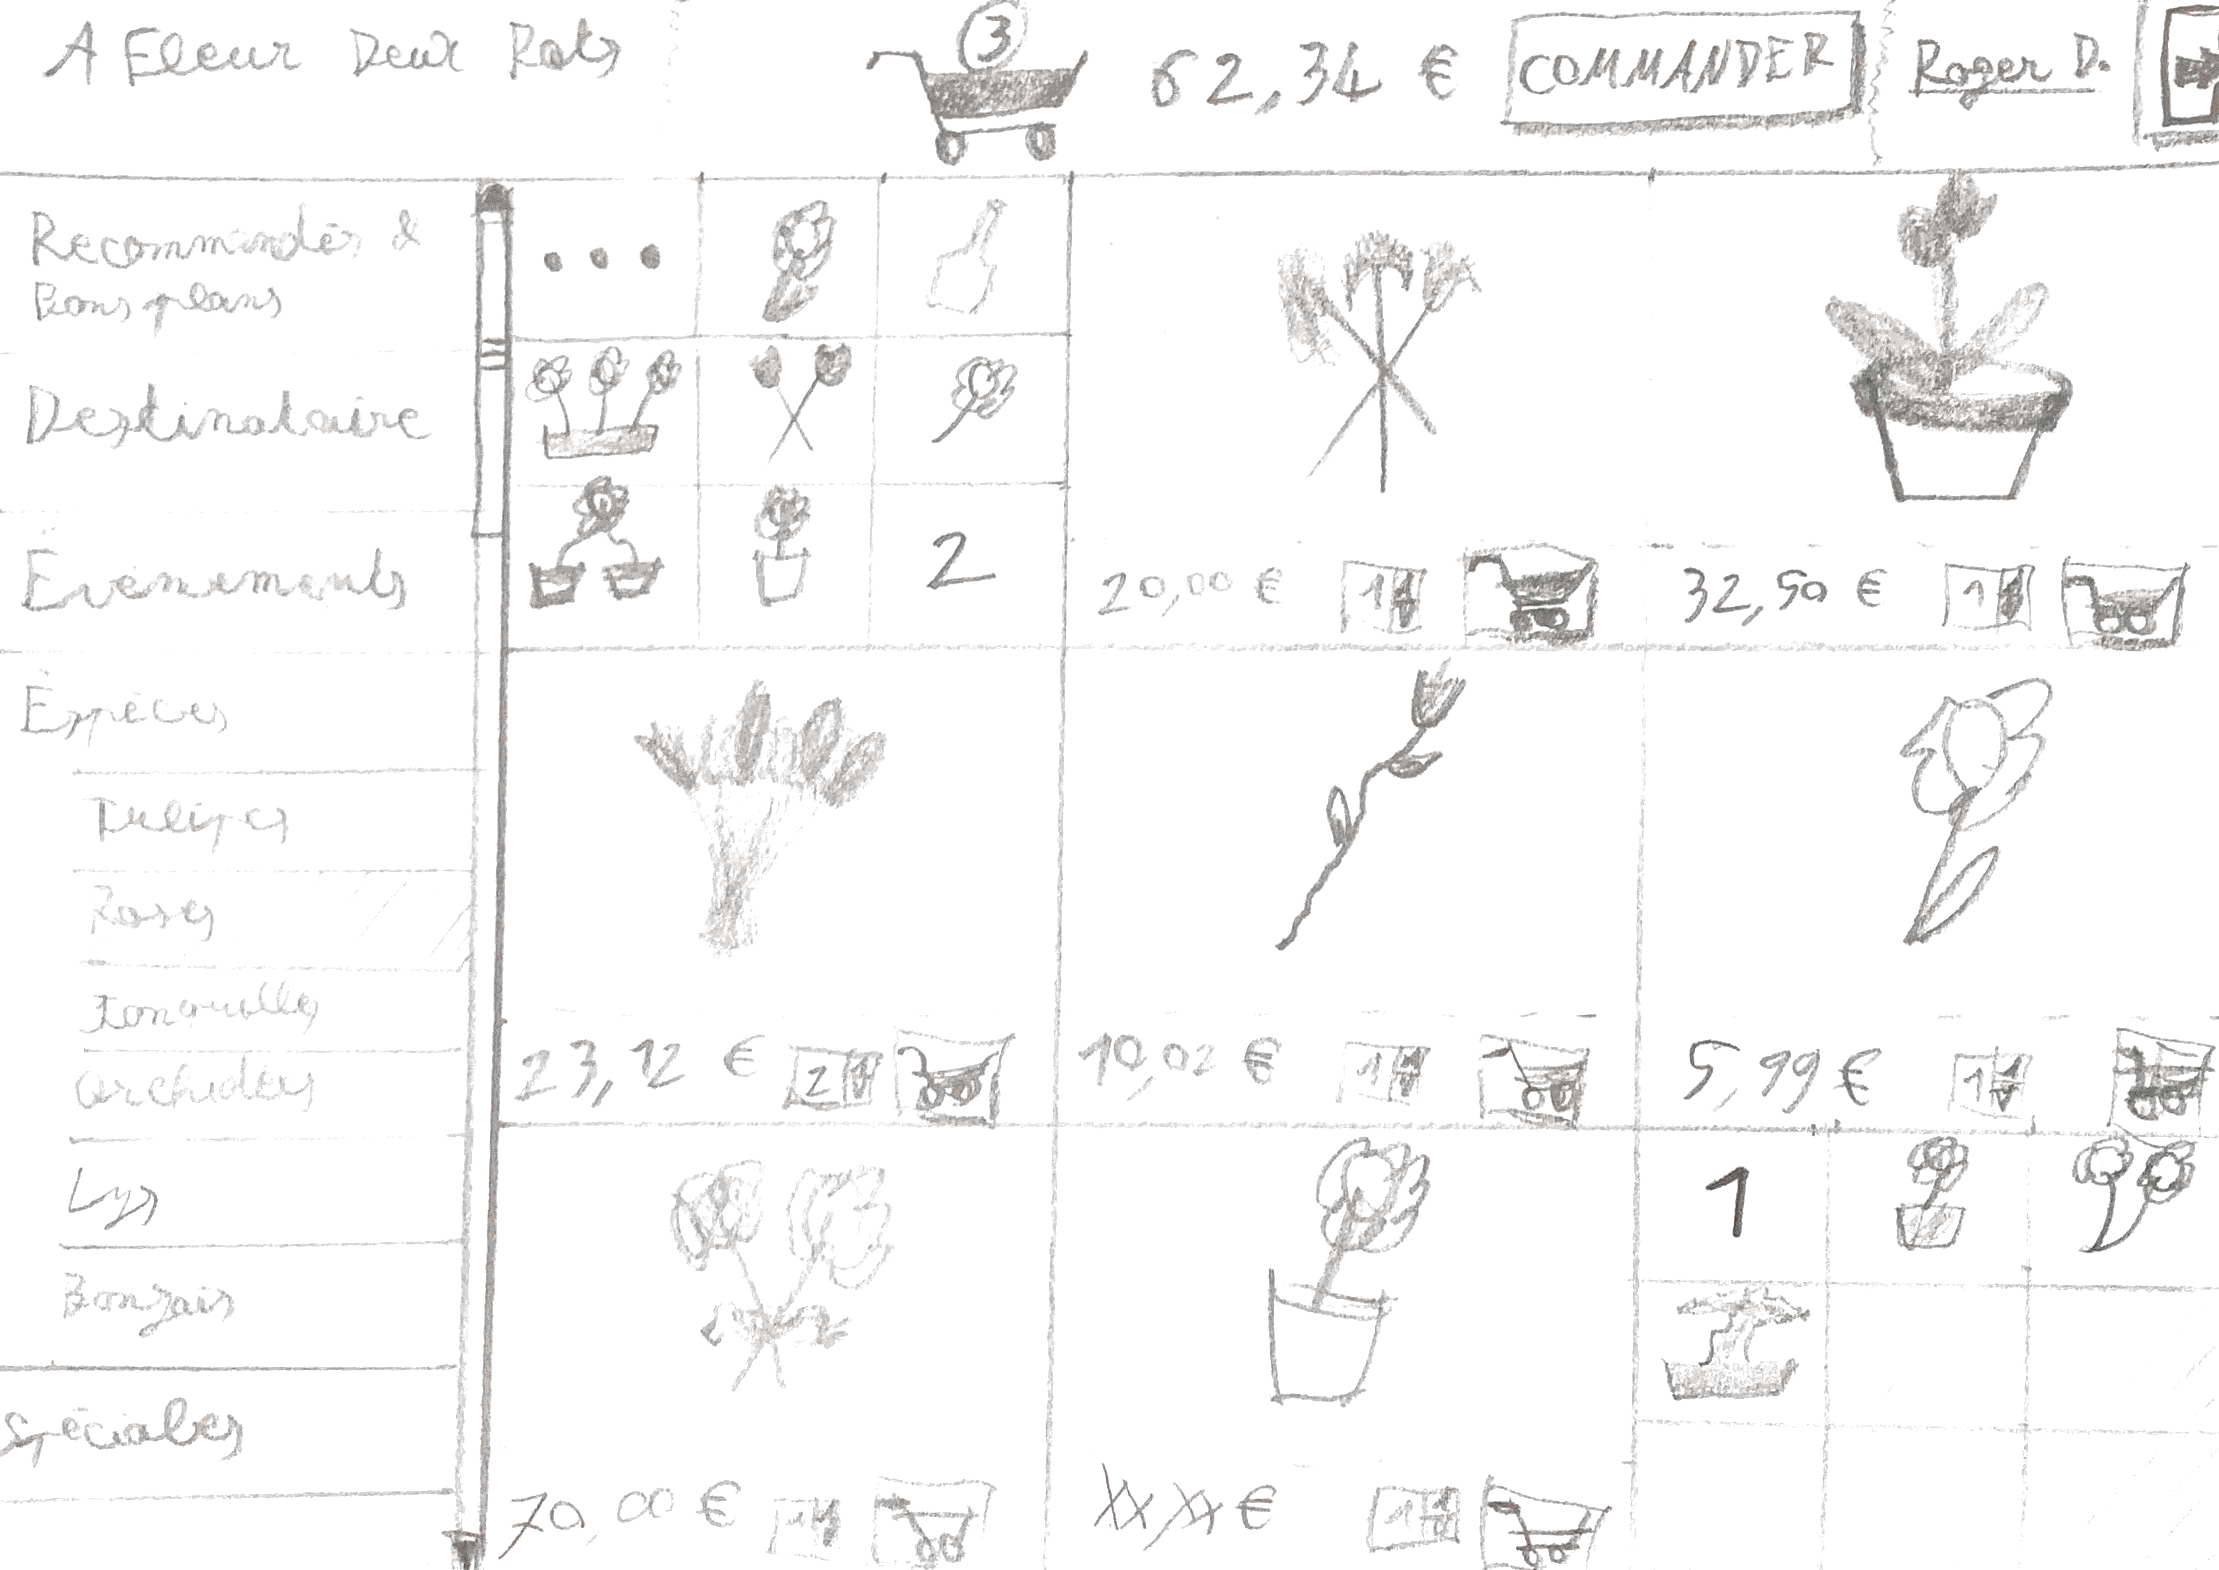 A Fleur Deux Rats
3
62,34 €
COMMANDER
Roger D.
Recommandés &
Bons plans
Destinataire
Évènements
Éspèces
Tulipes
Roses
Jonquilles
Orchidées
Lys
Bonzais
Spéciales
2
20,00 €
1
32,50 €
1
23,12 €
2
10,02 €
1
5,99 €
1
1
70,00 €
XX,XX €
1